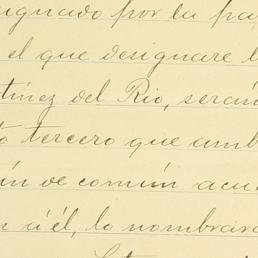 signado por la pa
el que designare l
tínez del Rio, serán
o tercero que amb
ún de común acu
n á él, lo nombrar